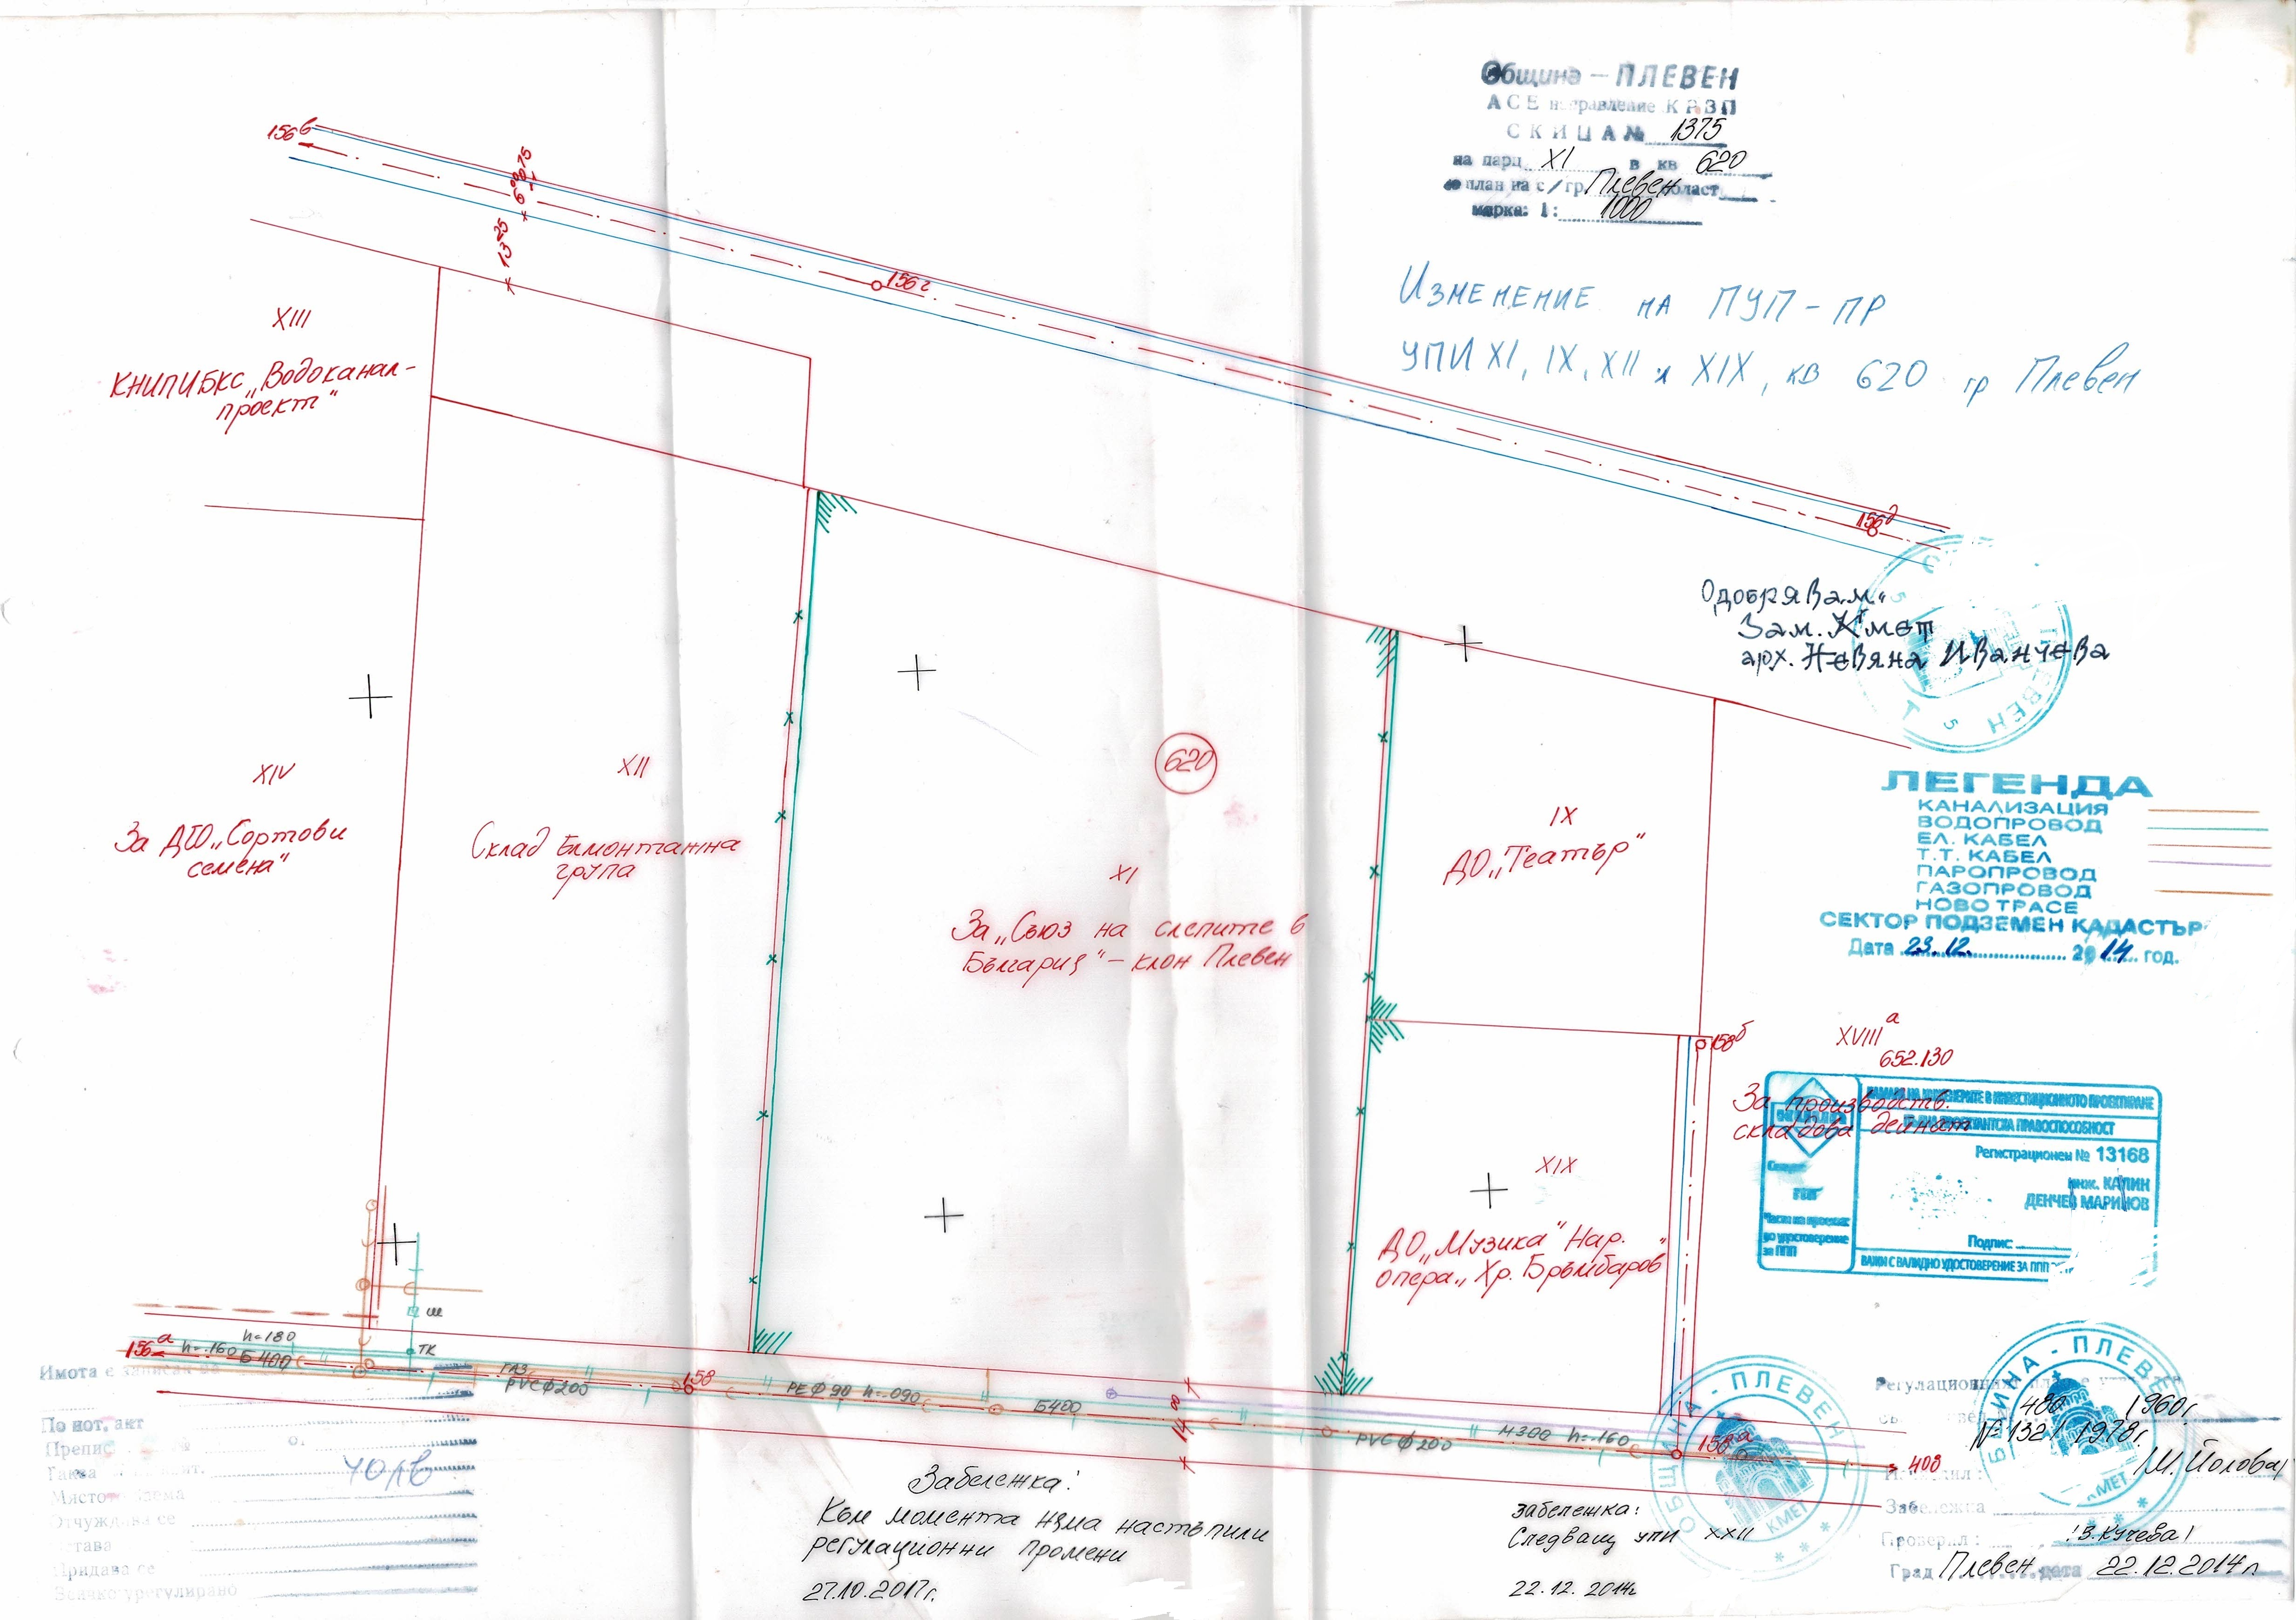 Община – ПЛЕВЕН
АСЕ направление КРЗП
СКИЦА № 1375
на парц XI в кв 620
план на с/гр. Плевен област
марка: 1: 1000
Изменение на ПУП – ПР
УПИ XI, IX, XII и XIX, кв 620 гр Плевен
156в
75
6
13 25
156г
156д
XIII
КНИПИБКС „Водоканал-
проект"
Одобрявам:
Зам. Кмет
арх. Невяна Иванчева
620
XIV
За ДСО „Сортови
семена"
XII
Склад Елмонтажна
група
XI
За „Съюз на слепите в
България" – клон Плевен
IX
ДО „Театър"
ЛЕГЕНДА
КАНАЛИЗАЦИЯ
ВОДОПРОВОД
ЕЛ. КАБЕЛ
Т.Т. КАБЕЛ
ПАРОПРОВОД
ГАЗОПРОВОД
НОВО ТРАСЕ
СЕКТОР ПОДЗЕМЕН КАДАСТЪР
Дата 23.12. 2014 год.
158б
XVIIIа
652.130
За производств.
складова дейност
КАМАРА НА ИНЖЕНЕРИТЕ В ИНВЕСТИЦИОННОТО ПРОЕКТИРАНЕ
ПРОЕКТАНТСКА ПРАВОСПОСОБНОСТ
Регистрационен № 13168
инж. КАЛИН
ДЕНЧЕВ МАРИНОВ
Части на проекта:
по удостоверение
за ППП
Подпис
ВАЖИ С ВАЛИДНО УДОСТОВЕРЕНИЕ ЗА ППП
XIX
ДО „Музика" Нар.
опера „Хр. Бръмбаров"
ш
ТК
156а
h=180
h=.160
Б400
ГАЗ
PVCф200
158
РЕф90 h=.090
Б400
14 00
PVCф200
М300 h=.160
158а
408
Имота е записан
По нот. акт
Мястото
Отчуждава се
Придава се
ОБЩИНА - ПЛЕВЕН
КМЕТ
ОБЩИНА - ПЛЕВЕН
КМЕТ
480 1960г
№ 132 / 1978г.
/М. Йолова/
Забележка
Проверил: /В. Кучева/
Град Плевен дата 22.12.2014г
Забележка:
Към момента няма настъпили
регулационни промени
27.10.2017г.
забележка:
Следващ упи XXII
22.12.2014г